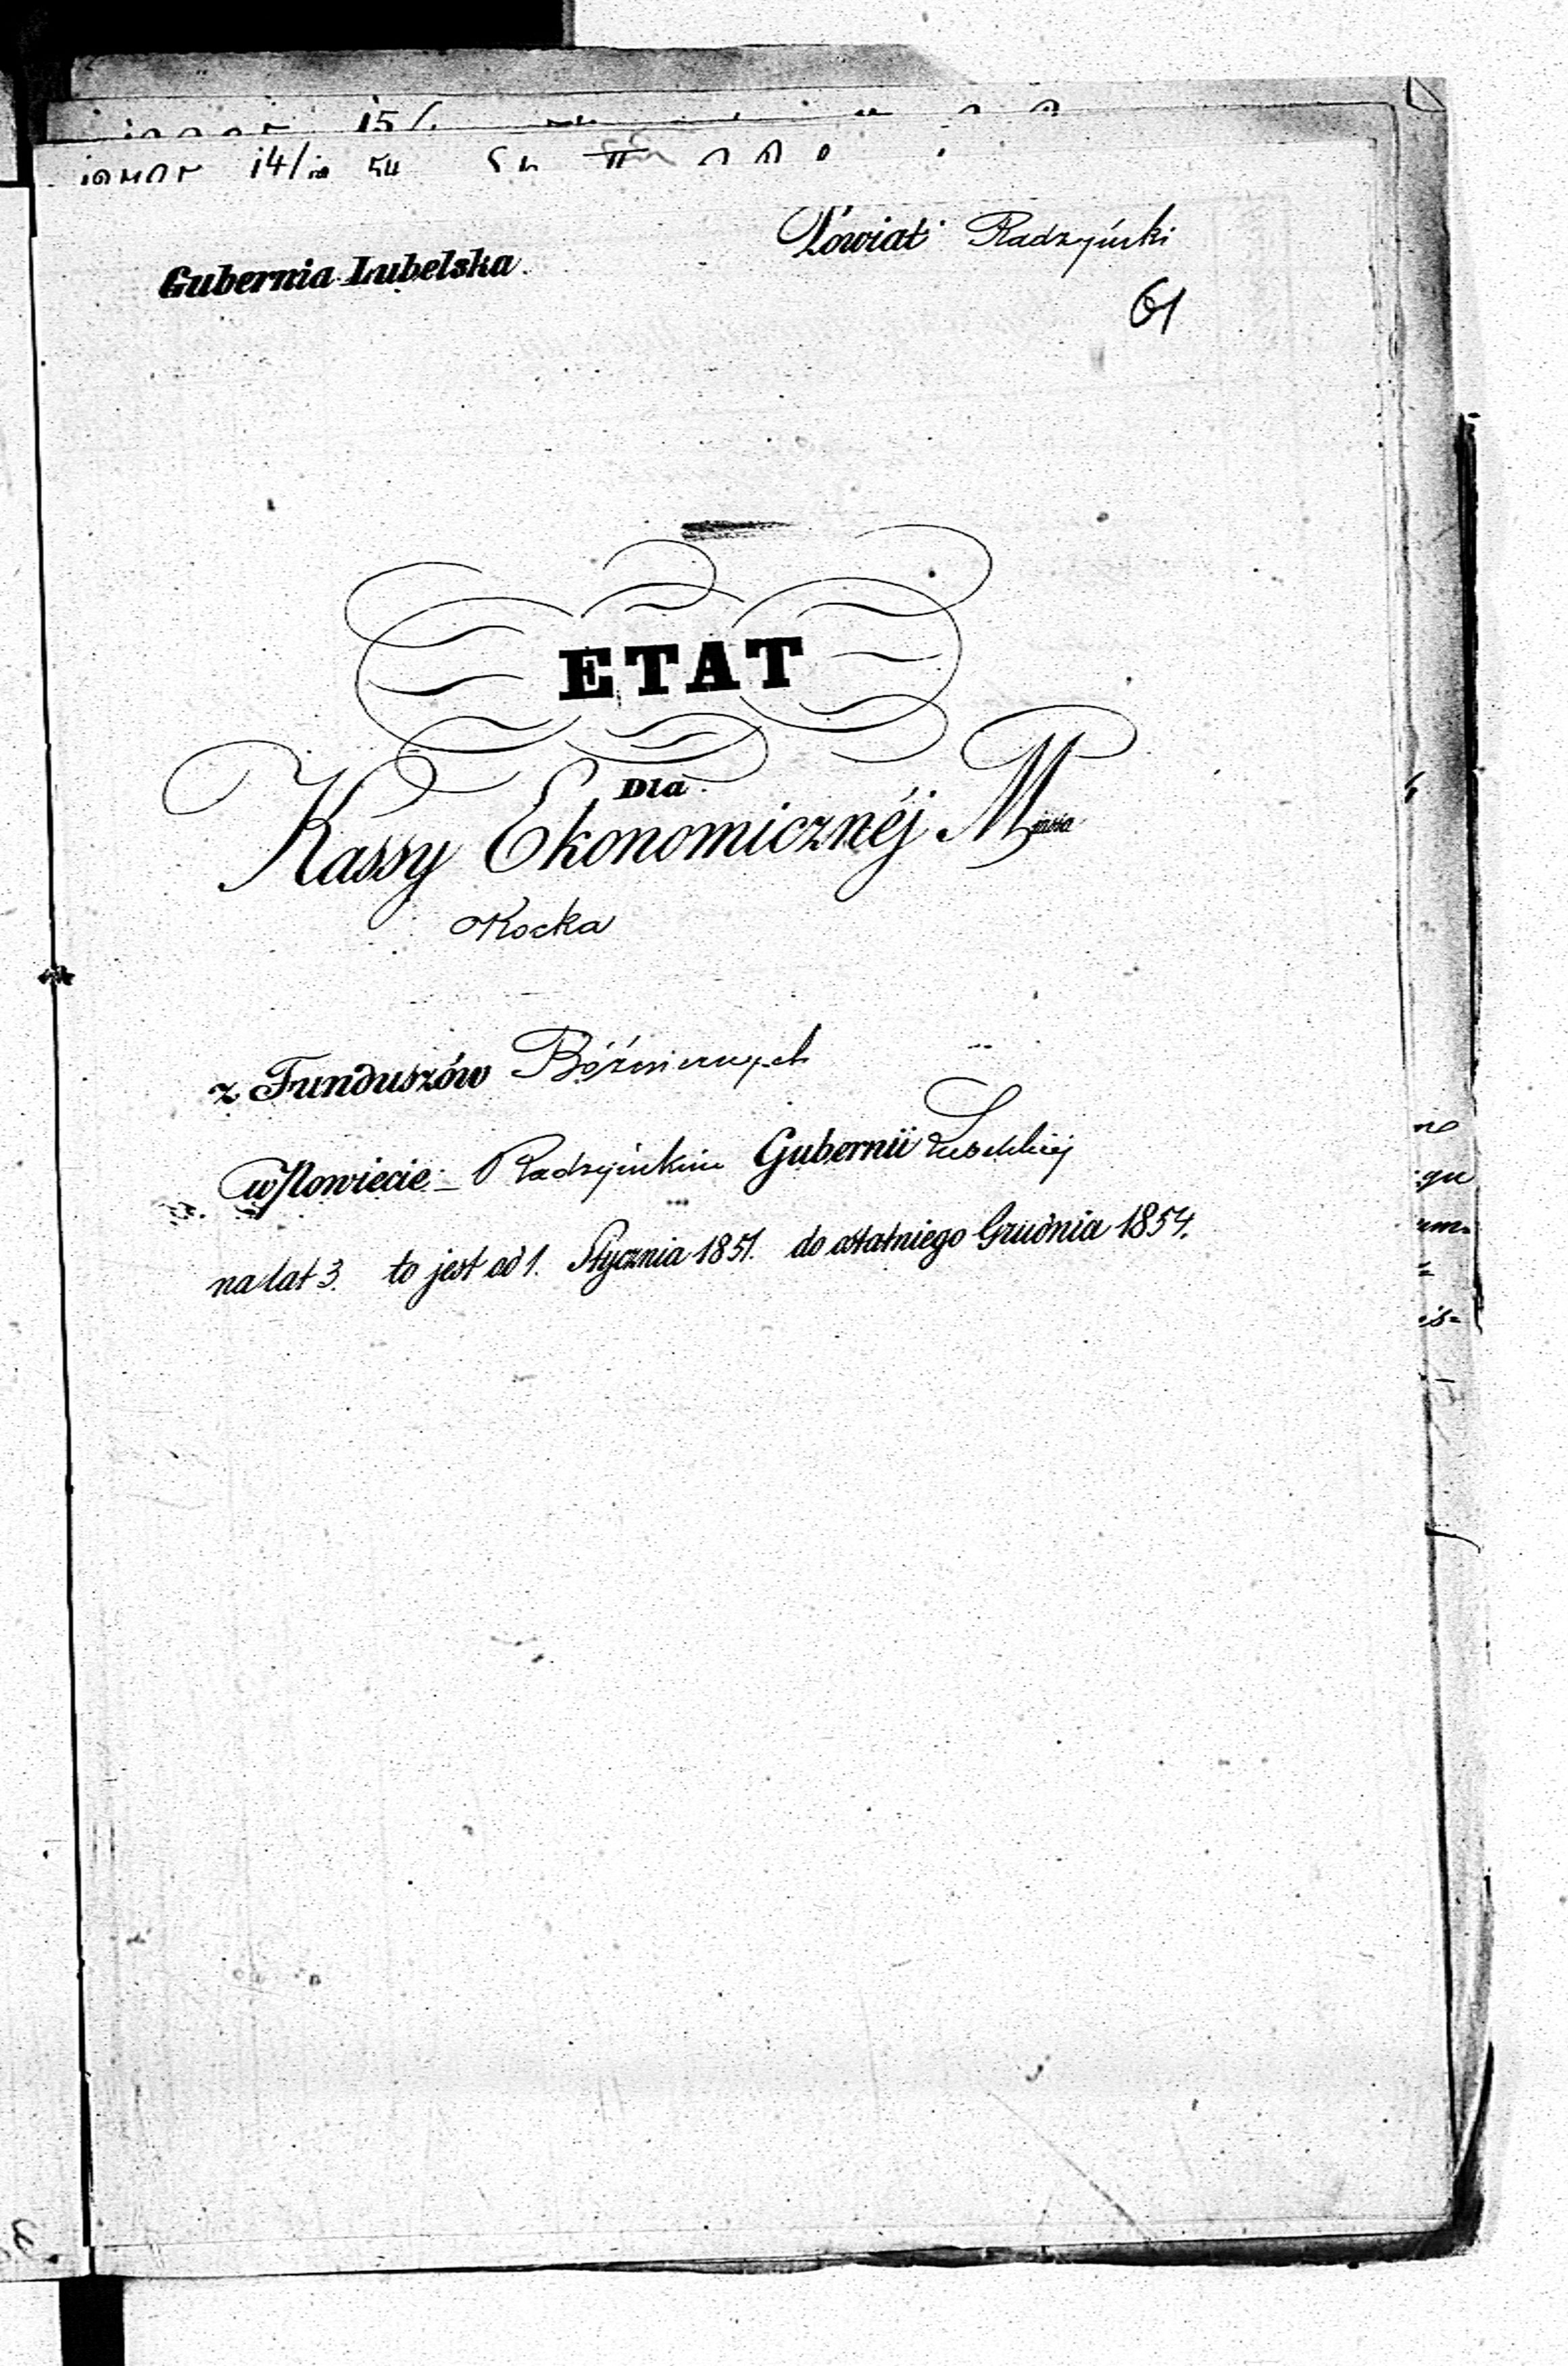 Gubernia Lubelska.
Powiat Radzyński
61
ETAT
Dla
Kassy Ekonomicznéj Miasta
Kocka
z Funduszów Bóżnicznych
w Powiecie Radzyńskim Gubernii Lubelskiej
na lat 3. to jest od 1. Stycznia 1851. do ostatniego Grudnia 1854.